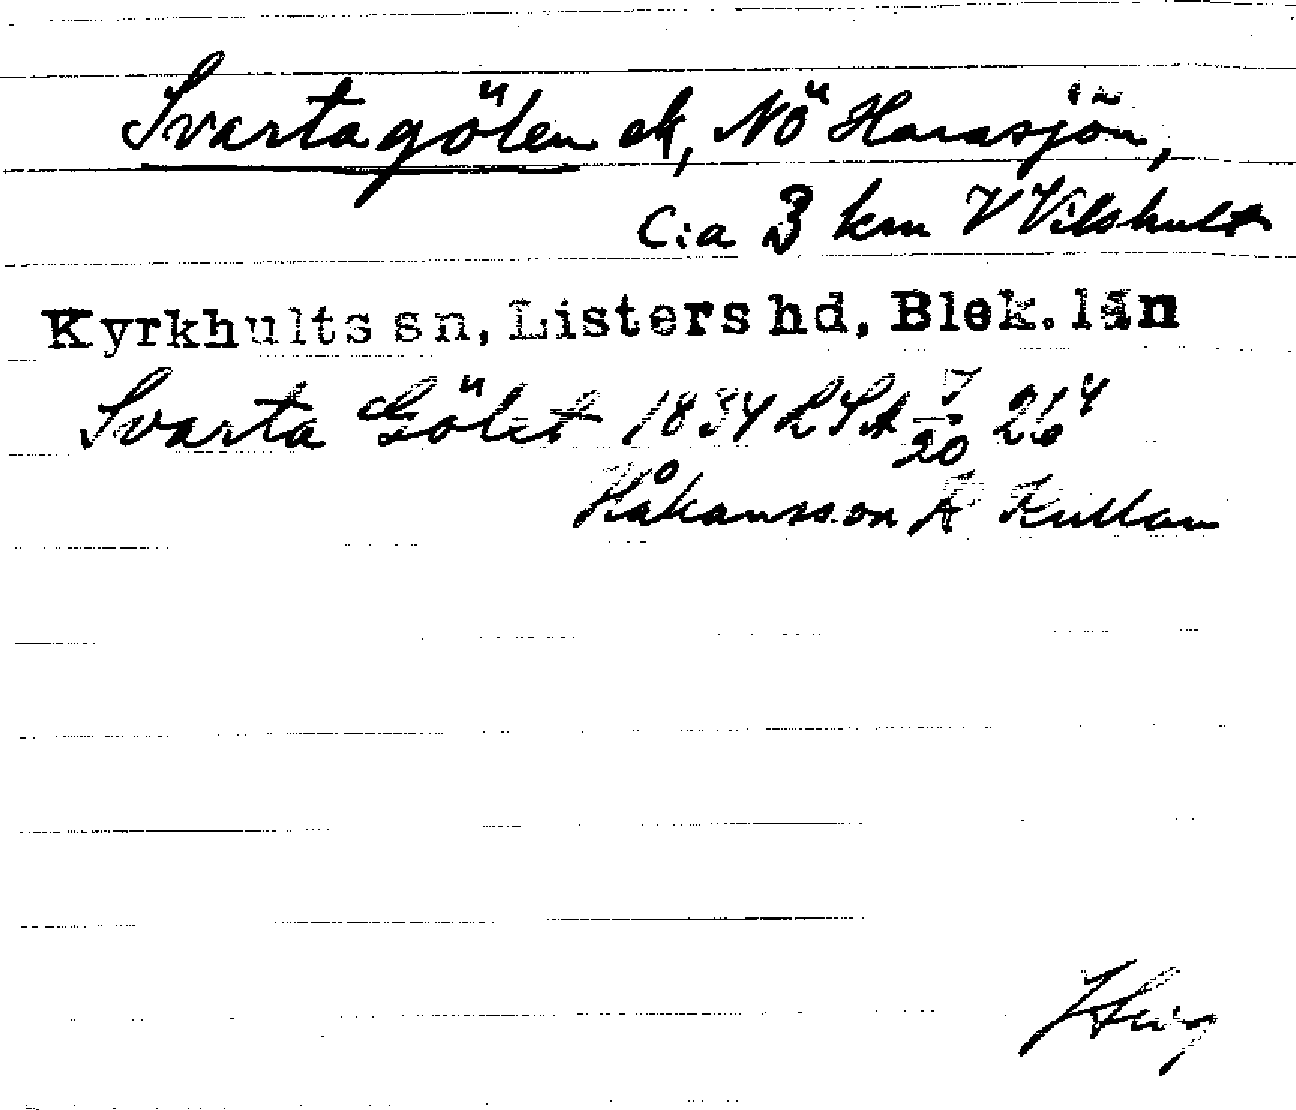 Svartagölen ek, NÖ Harasjön,
c:a 3 km V Vilshult
Kyrkhults sn, Listers hd, Blek. län
Svarta Gölet 1834 LSA 7/20 26⁴
Håkansson Å Kullam